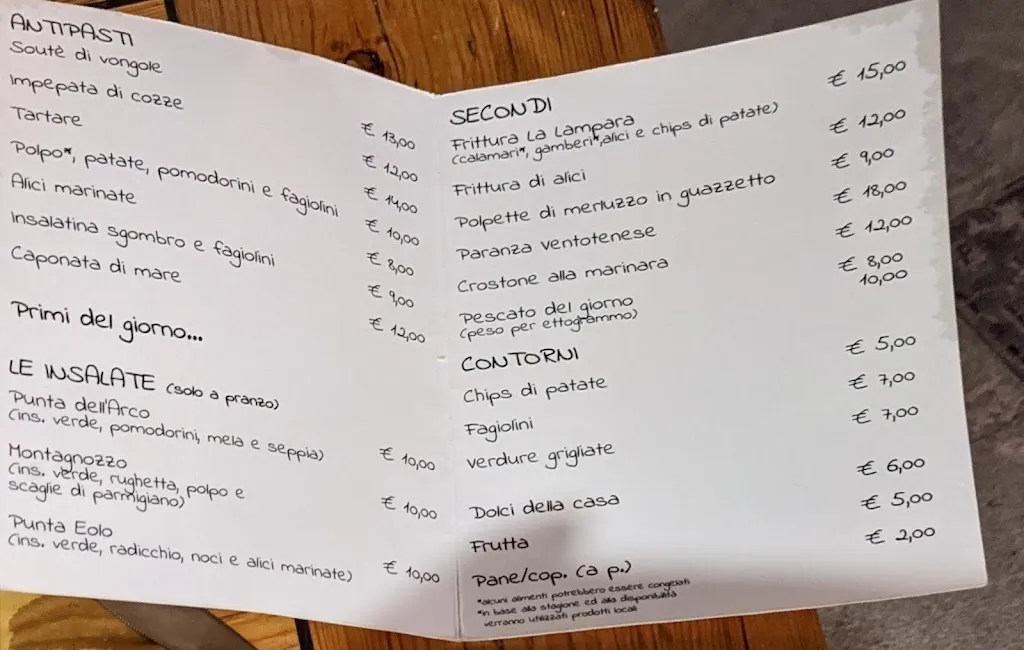 ANTIPASTI
Soutè di vongole € 13,00
Impepata di cozze € 12,00
Tartare € 14,00
Polpo*, patate, pomodorini e fagiolini € 10,00
Alici marinate € 8,00
Insalatina sgombro e fagiolini € 9,00
Caponata di mare € 12,00
Primi del giorno...
LE INSALATE (solo a pranzo)
Punta dell'Arco
(ins. verde, pomodorini, mela e seppia) € 10,00
Montagnozzo
(ins. verde, rughetta, polpo e
scaglie di parmigiano) € 10,00
Punta Eolo
(ins. verde, radicchio, noci e alici marinate) € 10,00
SECONDI
Frittura La Lampara € 15,00
(calamari*, gamberi*, alici e chips di patate)
Frittura di alici € 12,00
Polpette di merluzzo in guazzetto € 9,00
Paranza ventotenese € 18,00
Crostone alla marinara € 12,00
Pescato del giorno € 8,00
(peso per ettogrammo) 10,00
CONTORNI
Chips di patate € 5,00
Fagiolini € 7,00
verdure grigliate € 7,00
Dolci della casa € 6,00
Frutta € 5,00
Pane/cop. (a p.) € 2,00
*alcuni alimenti potrebbero essere congelati
*in base alla stagione ed alla disponibilità
verranno utilizzati prodotti locali